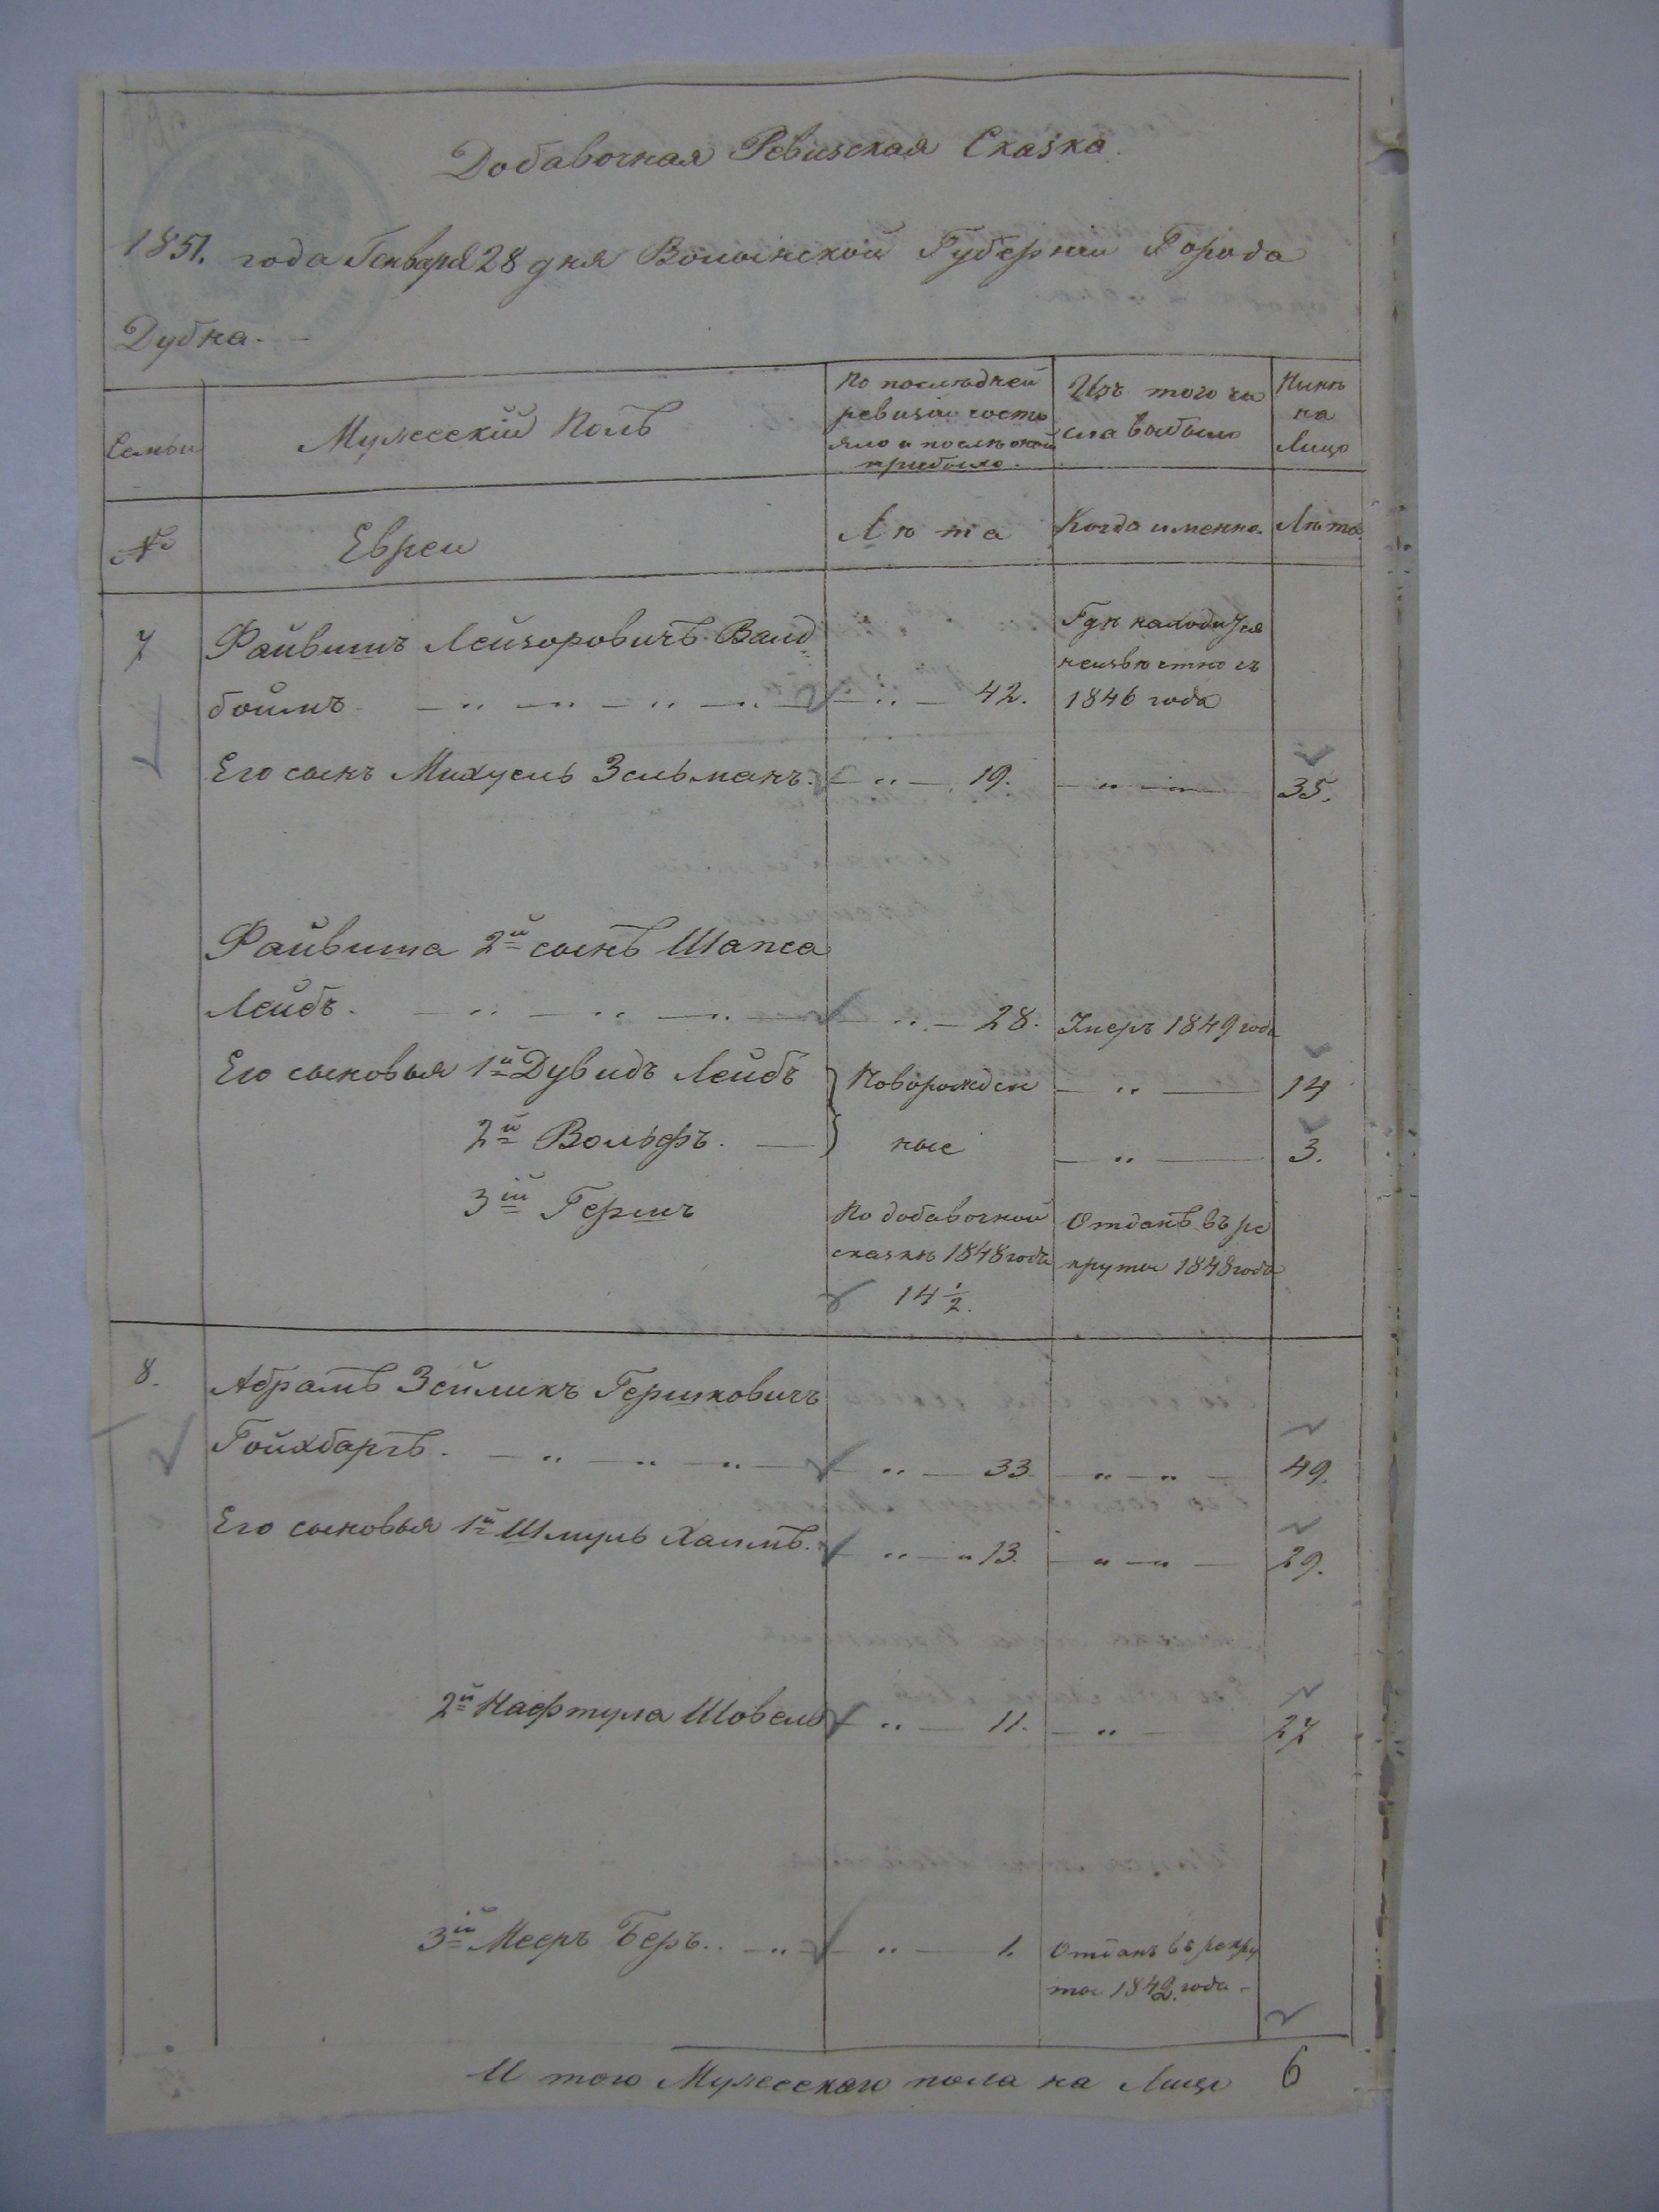 Добавочная Ревизская Сказка.
1851. года Генваря 28 дня Волынской Губернии Города
Дубна.
Семьи
Мужеский Полъ
По последней
ревизіи состо
яло и после оной
прибыло.
Изъ того чи
сла выбыло
Ныне
на
Лицо
№
Евреи
Лѣта
Когда именно.
Лѣта.
7
Файвишъ Лейзоровичъ Валд
боймъ. 42.
Где находится
неизвѣстно съ
1846 года
Его сынъ Михуель Зельманъ. 19. 35.
Файвиша 2й сынъ Шапса
Лейбъ. 28. Умеръ 1849 года
Его сыновья 1й Дувидъ Лейбъ } Новорожден 14
2й Вольфъ. } ные 3.
3ій Гершъ
По добавочной
сказкѣ 1848 года
14 1/2.
Отданъ въ ре
круты 1848 года
8.
Абрамъ Зейликъ Гершковичъ
Гойхбаргъ. 33. 49.
Его сыновья 1й Шмуль Хаимъ. 13. 29.
2й Нафтула Шовель 11. 27
3ій Мееръ Беръ. 1. Отданъ въ рекру
ты 1842. года
И того Мужескаго пола на Лицо 6